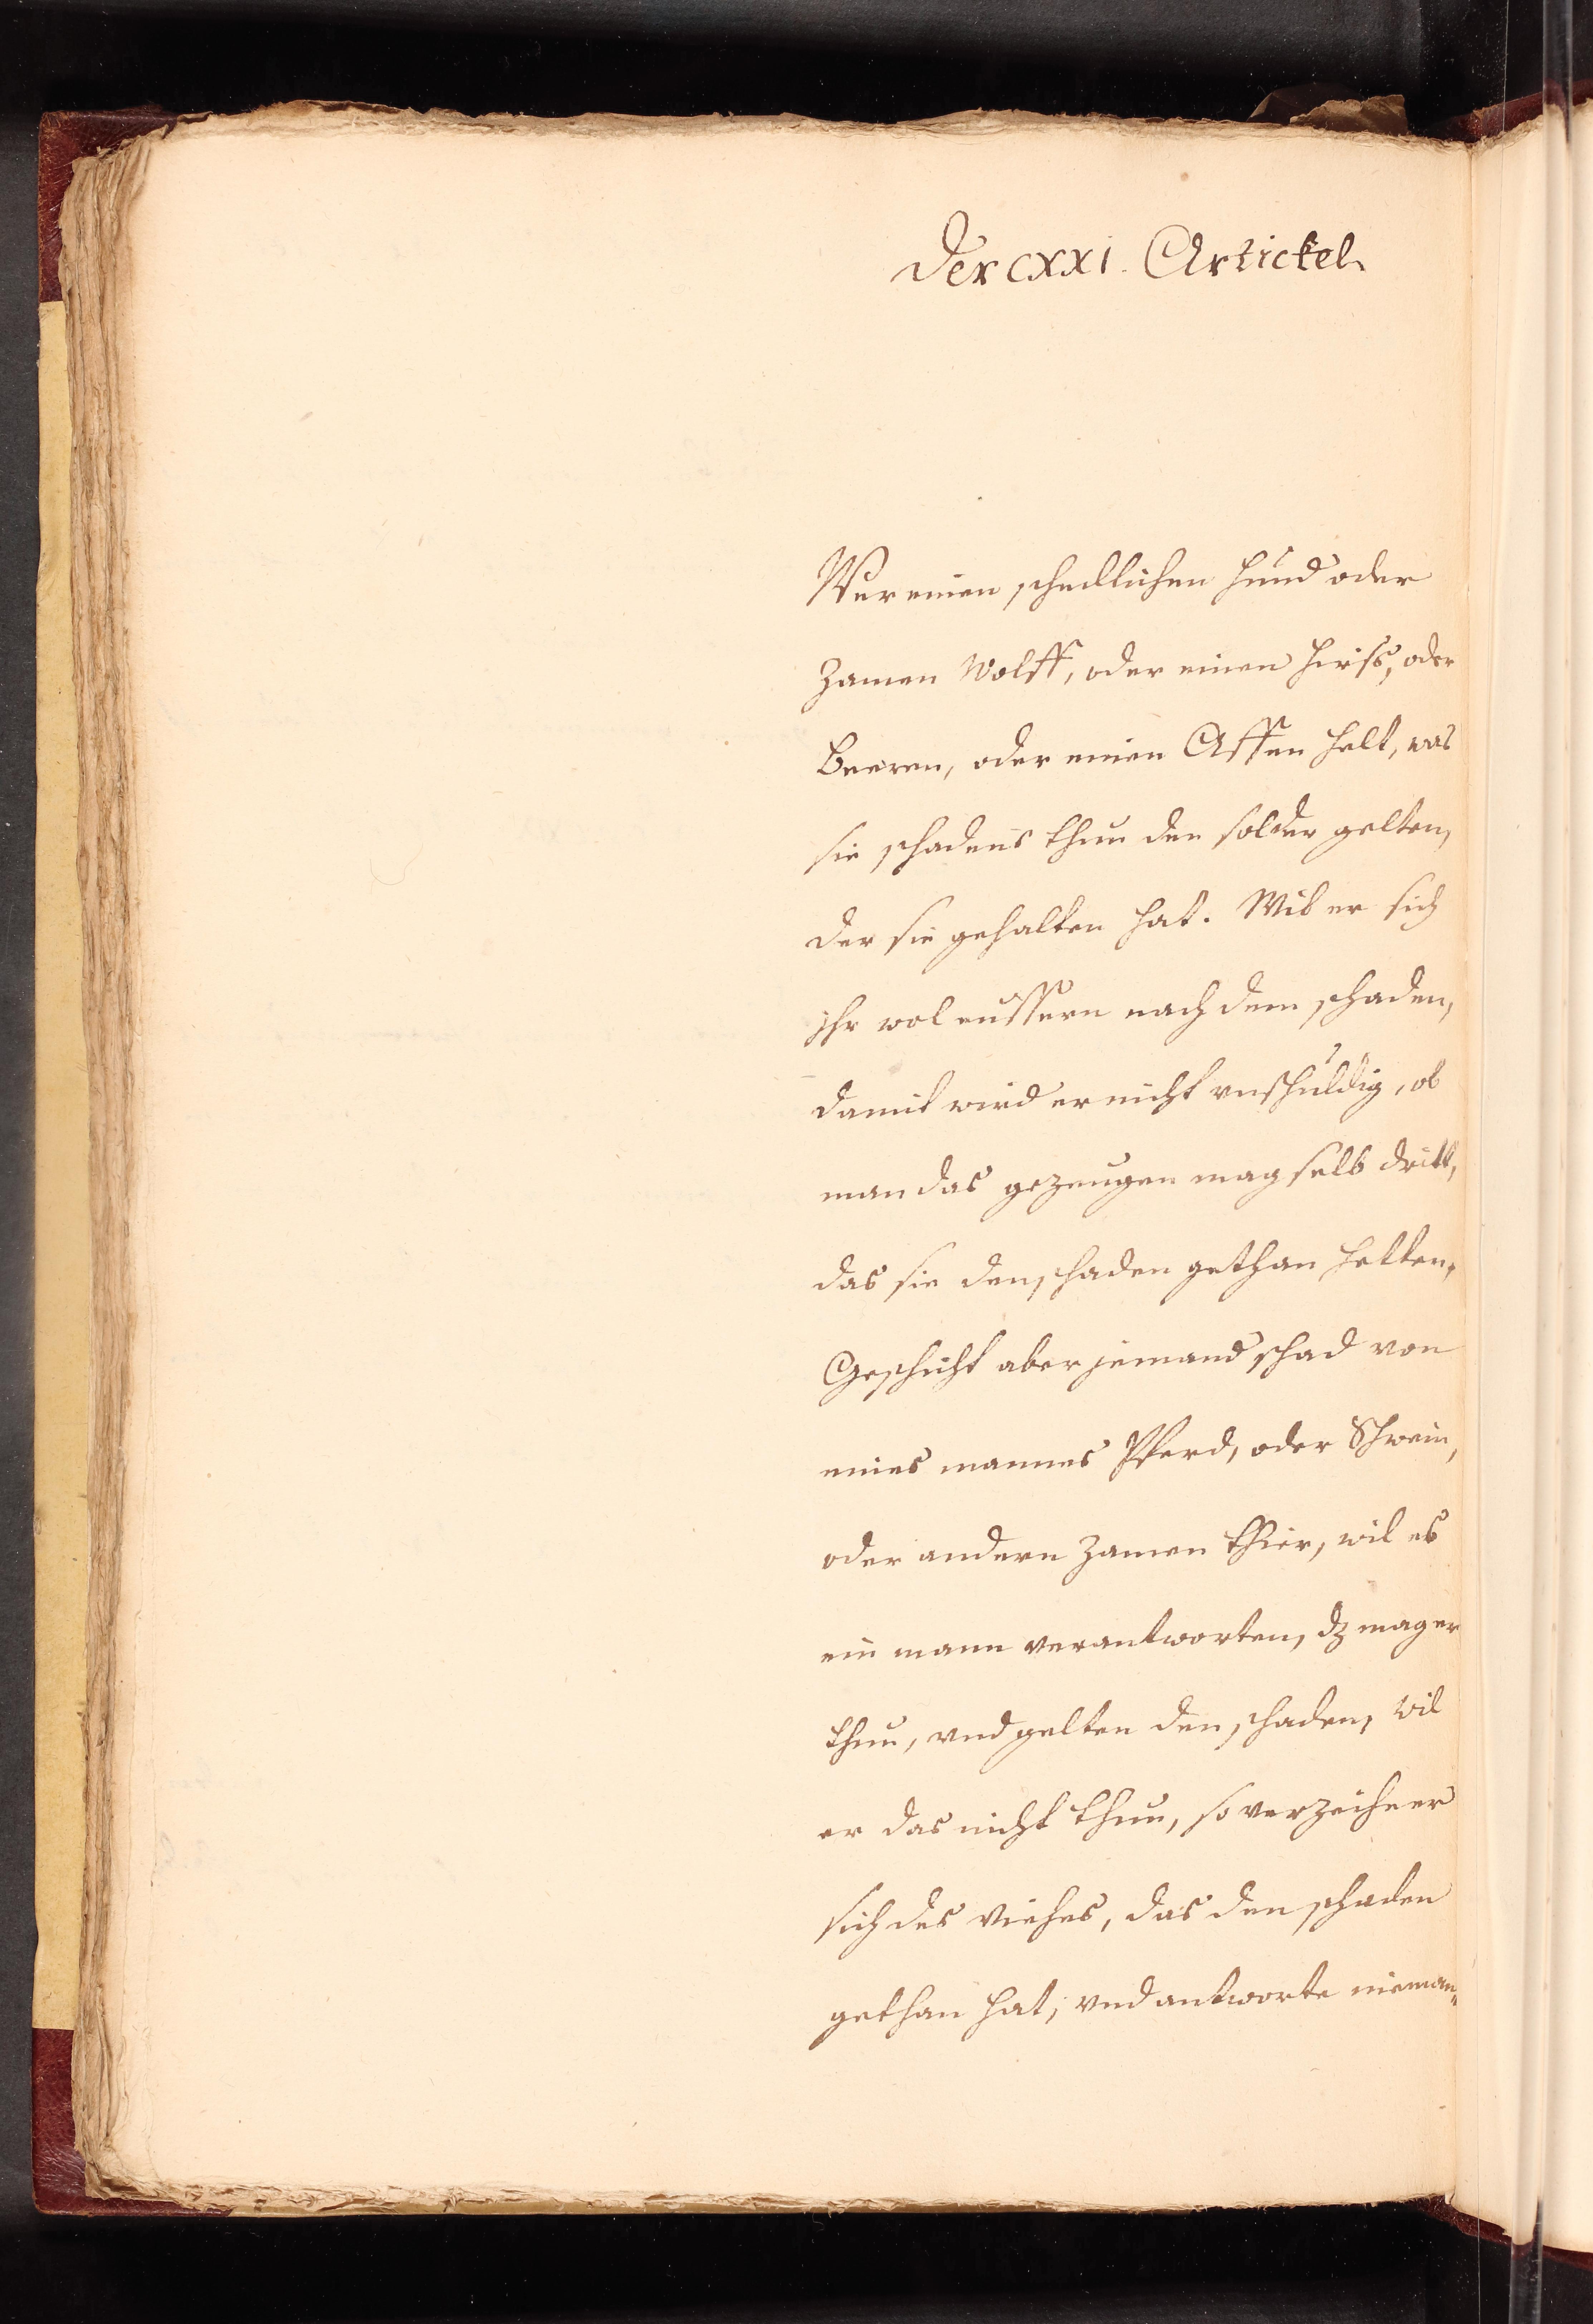 Der CXXI. Artickel
Wer einen schedlichen hund oder
Zamen Wolff, oder einen hirss, oder
beeren, oder einen Affen helt, was
sie schadens thun den sol der gelten,
der sie gehalten hat. Wil er sich
jhr wol eussern nach dem schaden,
damit wird er nicht unschuldig, ob
man das gezeugen mag selb dritt,
das sie den schaden gethan hetten.
Geschicht aber jemand schad von
eines mannes Pferd, oder Schwein,
oder andern Zamen thier, wil es
ein mann verantworten, dz mag er
thun, vnd gelten den schaden, Wil
er das nicht thun, so verzeihe er
sich des viehes, das den schaden
gethan hat, vnd antworte nieman-